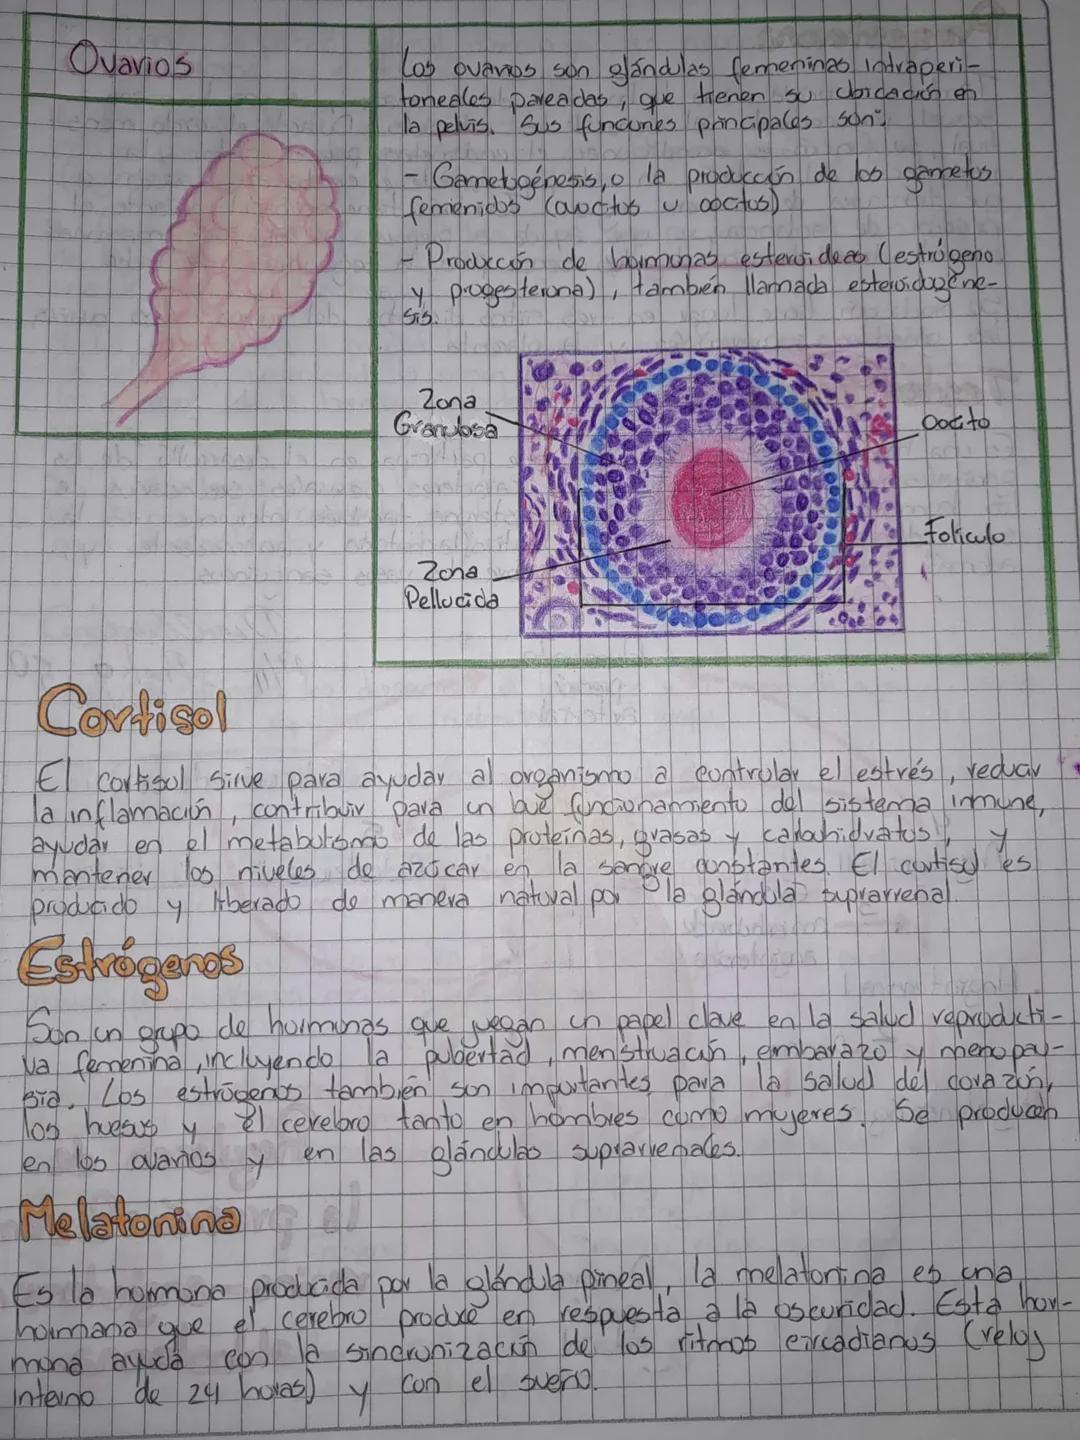 Ovarios
Los ovarios son glándulas femeninas intraperi-
toneales pareadas, que tienen su ubicación en
la pelvis. Sus funciones principales son:
- Gametogénesis, o la producción de los gametos
femeninos (ovocitos u oocitos)
- Producción de hormonas esteroideas (estrógeno
y progesterona), también llamada esteroidogéne-
sis.
Zona
Granulosa
Oocito
Folículo
Zona
Pellucida
Cortisol
El cortisol sirve para ayudar al organismo a controlar el estrés, reducir
la inflamación, contribuir para un bue funcionamiento del sistema inmune,
ayudar en el metabolismo de las proteínas, grasas y carbohidratos, y
mantener los niveles de azúcar en la sangre constantes. El cortisol es
producido y liberado de manera natural por la glándula suprarrenal.
Estrógenos
Son un grupo de hormonas que juegan un papel clave en la salud reproducti-
va femenina, incluyendo la pubertad, menstruación, embarazo y menopau-
sia. Los estrógenos también son importantes para la salud del corazón,
los huesos y el cerebro tanto en hombres como mujeres. Se producen
en los ovarios y en las glándulas suprarrenales.
Melatonina
Es la hormona producida por la glándula pineal, la melatonina es una
hormona que el cerebro produce en respuesta a la oscuridad. Esta hor-
mona ayuda con la sincronización de los ritmos circadianos (reloj
interno de 24 horas) y con el sueño.